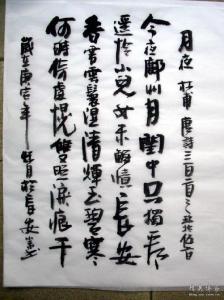 月夜 杜甫 唐詩三百首之
今夜鄜州月閨中只獨看
遥怜小兒女未解憶長安
香霧雲鬟濕清輝玉臂寒
何時倚虛幌雙照淚痕干
歲在庚寅年 於長安